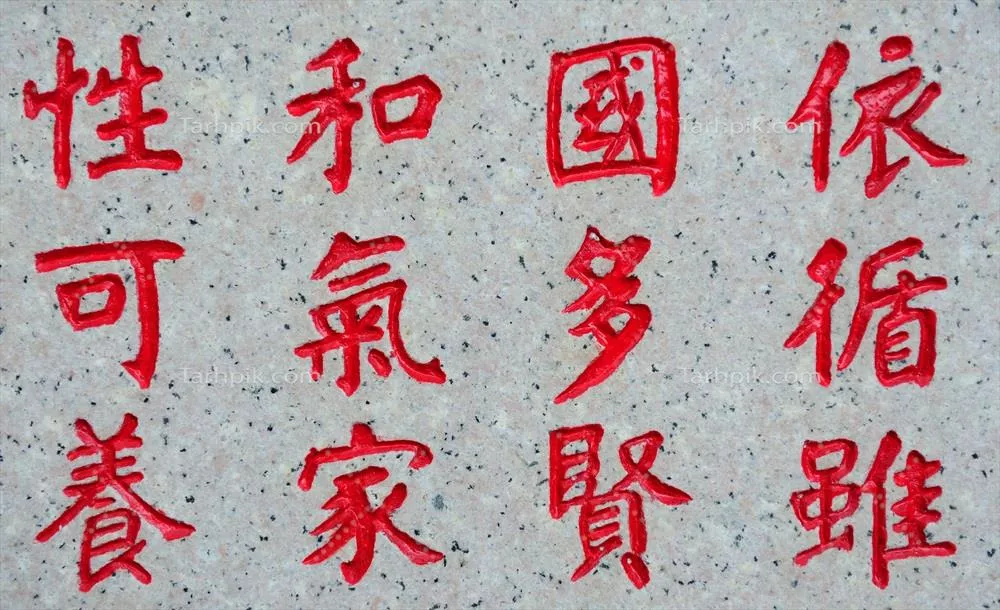 依循雖
國多賢
和氣家
性可養
Tarhpik.com
Tarhpik.com
Tarhpik.com
Tarhpik.com